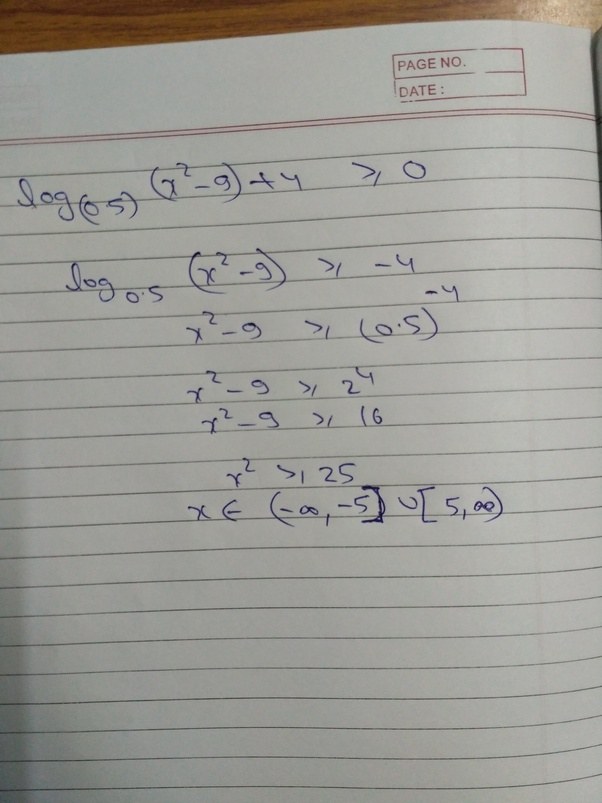 PAGE NO.
DATE :
log(0.5) (x²-9)+4 ⩾ 0
log0.5 (x²-9) ⩾ -4
x²-9 ⩾ (0.5)⁻⁴
x²-9 ⩾ 2⁴
x²-9 ⩾ 16
x² ⩾ 25
x ∈ (-∞, -5] ∪ [5, ∞)